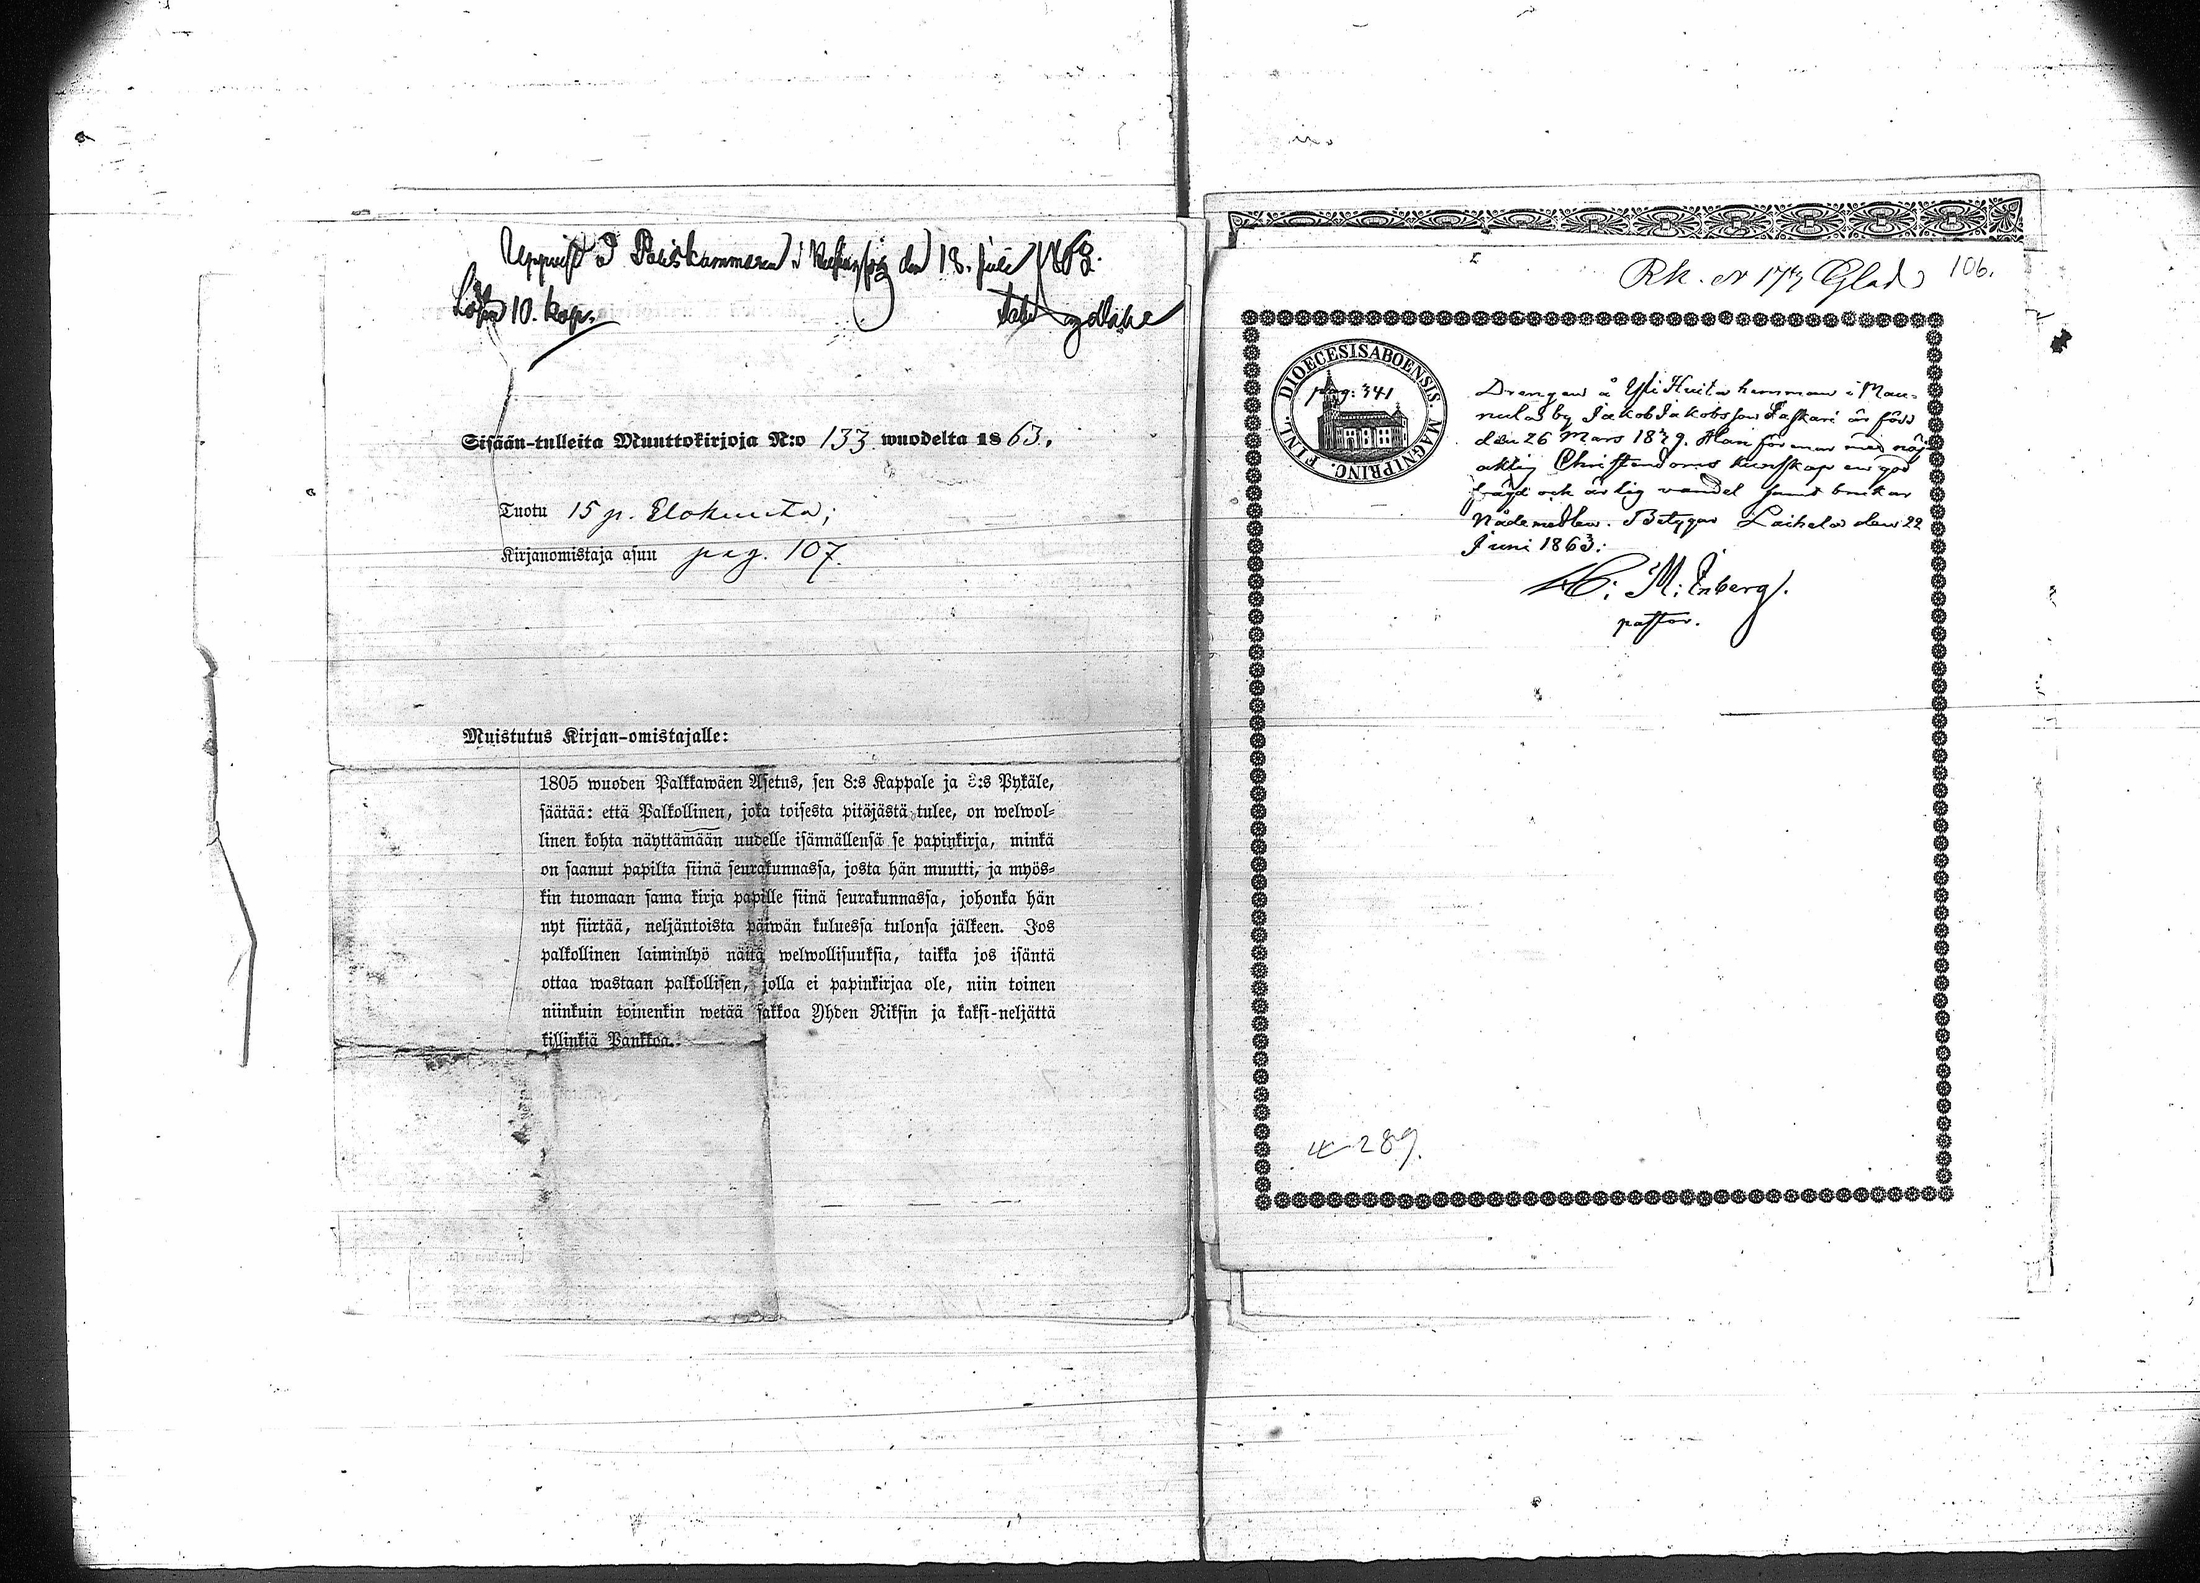 Uppvist å Poliskammaren i Helsingfors den 18. Juli 1863.
Lösen 10. kop.
Sisään-tulleita Muuttokirjoja N:o 133 wuodelta 1863.
Tuotu 15 p. Elokuuta;
Kirjanomistaja asuu pag. 107.
Muistutus Kirjan-omistajalle:
1805 wuoden Palkkawäen Asetus, sen 8:s Kappale ja 3:s Pykäle,
säätää: että Palkollinen, joka toisesta pitäjästä tulee, on welwol-
linen kohta näyttämään uudelle isännällensä se papinkirja, minkä
on saanut papilta siinä seurakunnassa, josta hän muutti, ja myös-
kin tuomaan sama kirja papille siinä seurakunnassa, johonka hän
nyt siirtää, neljäntoista päiwän kuluessa tulonsa jälkeen. Jos
palkollinen laiminlyö näitä welwollisuuksia, taikka jos isäntä
ottaa wastaan palkollisen, jolla ei papinkirjaa ole, niin toinen
niinkuin toinenkin wetää sakkoa Yhden Riksin ja kaksi-neljättä
killinkiä Pankkoa.
Rk. N 17 Glad 106.
DIOECESIS ABOENSIS. MAGNI PRINC. FINL.
pag: 341
Drengen å Yli Huita hemman i Man-
nula by Jakob Jakobsson Laskari är född
den 26 Mars 1839. Han förenar med nöj-
aktig Christendoms kunskap en god
frägd och ärlig vandel samt brukar
Nådemedlen. Betygar Laihela den 22
Juni 1863:
pastor.
289.